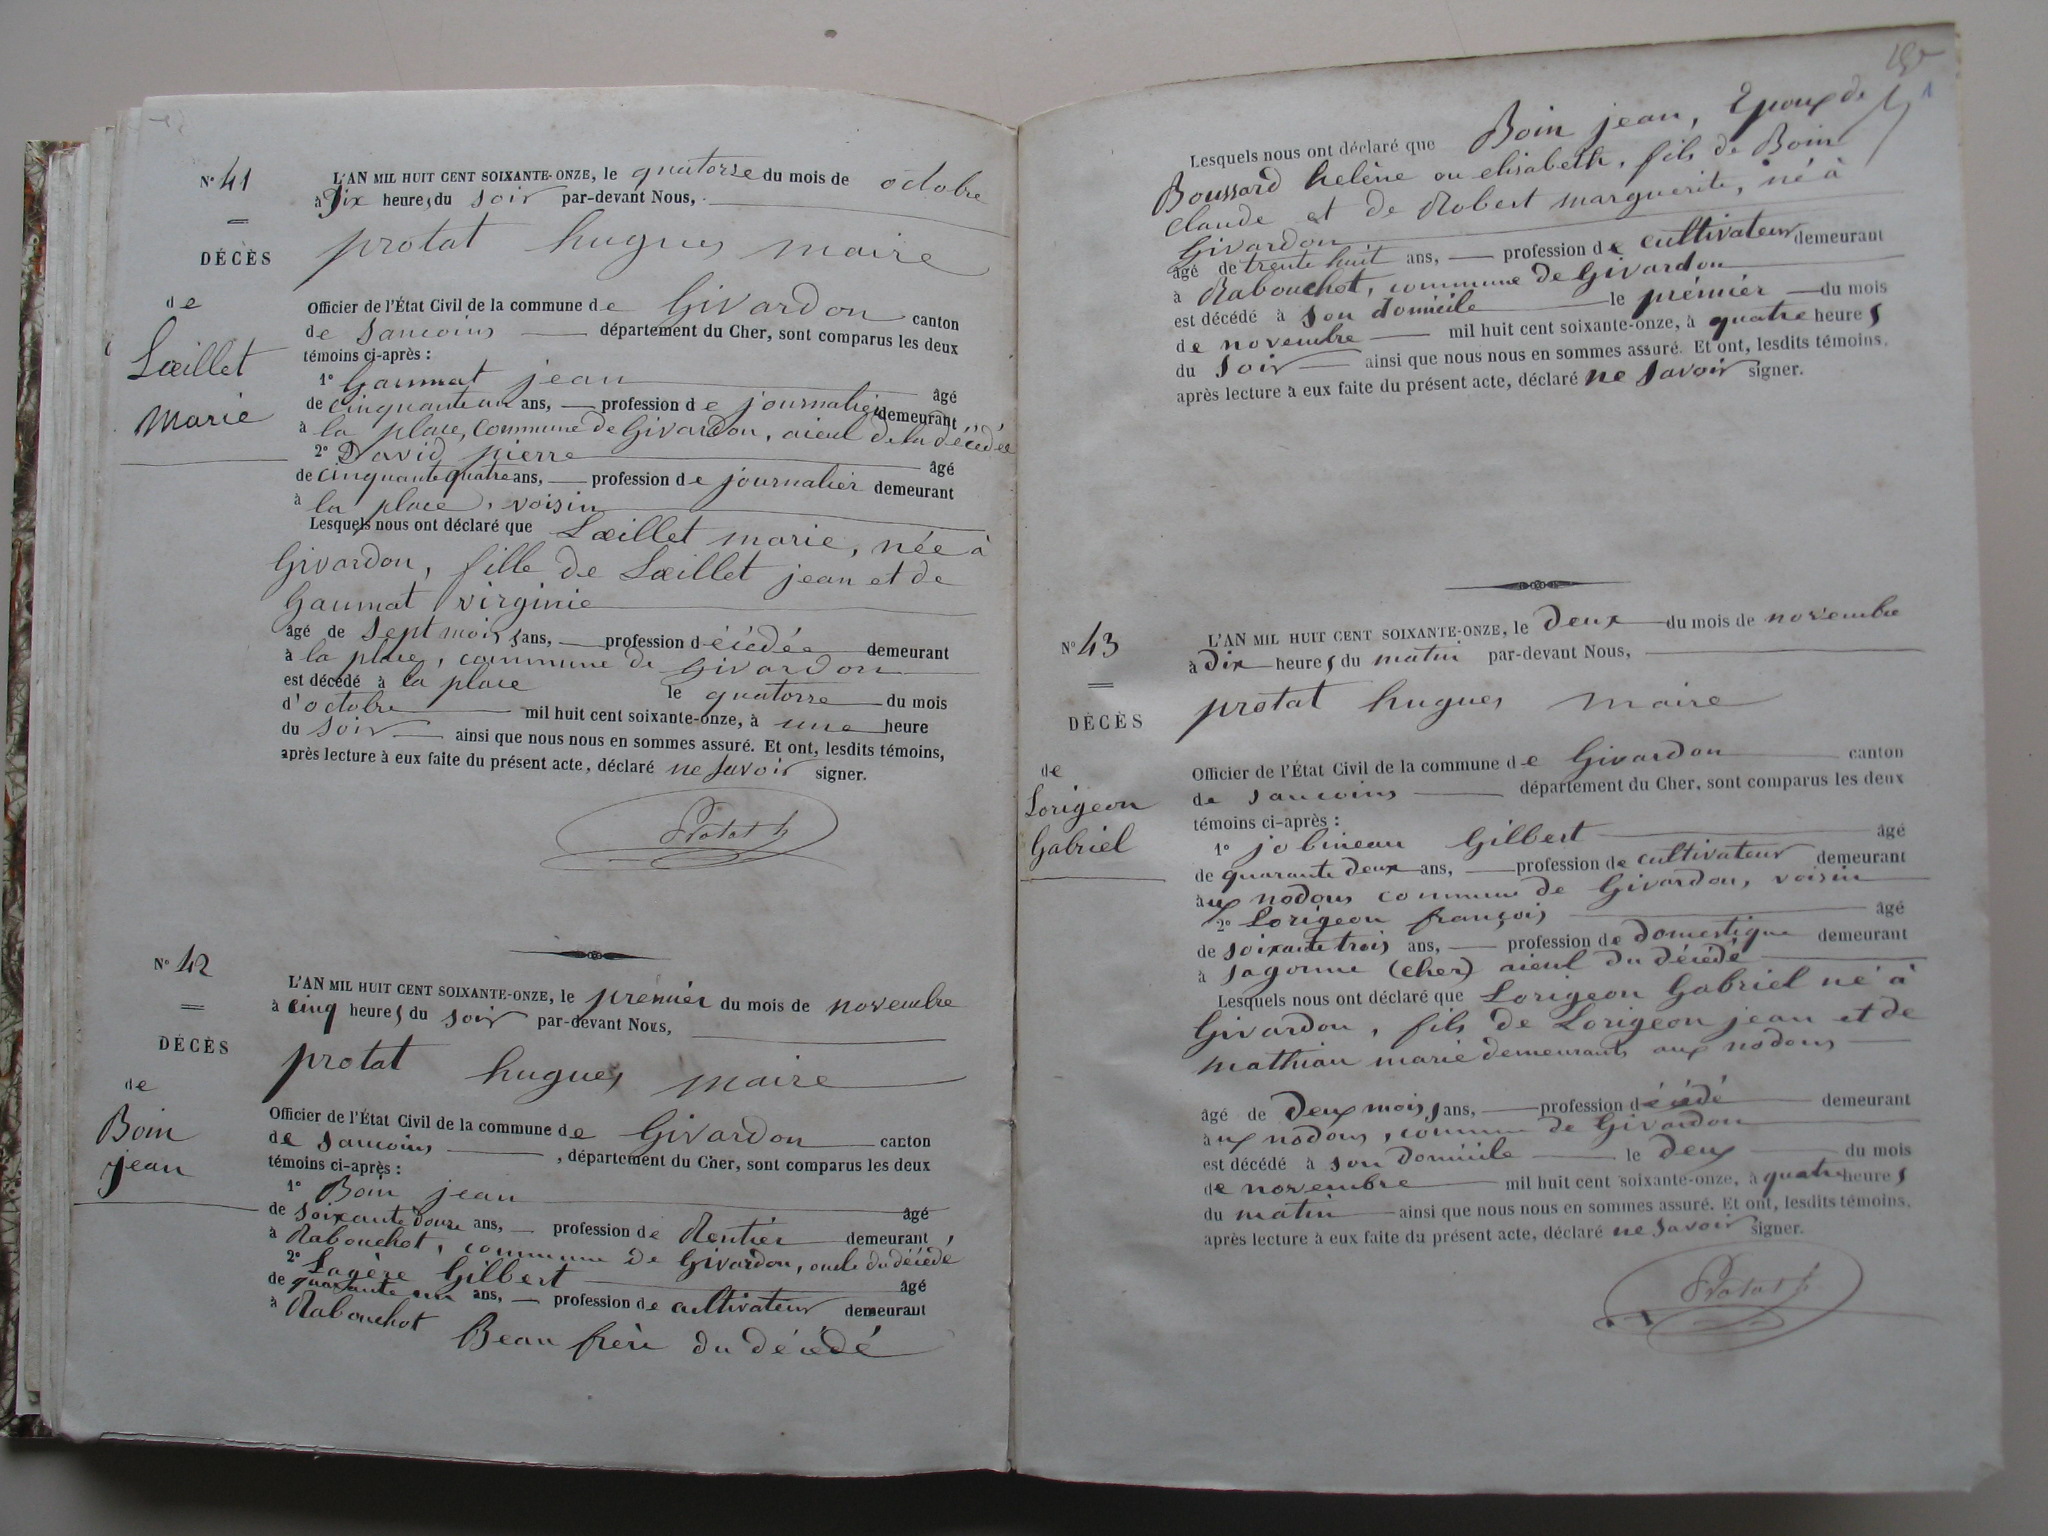 N° 41
DÉCÈS
de
Lœillet
Marie
L'AN MIL HUIT CENT SOIXANTE-ONZE, le quatorze du mois de octobre
à Dix heures du soir par-devant Nous,
protat hugues maire
Officier de l'État Civil de la commune de Givardon canton
de Sancoins département du Cher, sont comparus les deux
témoins ci-après :
1° Gaumat jean âgé
de cinquante un ans, profession de journalier demeurant
à la place, commune de Givardon, aieul de la décédée
2° David pierre âgé
de cinquante quatre ans, profession de journalier demeurant
à la place, voisin
Lesquels nous ont déclaré que Lœillet marie, née à
Givardon, fille de Lœillet jean et de
Gaumat virginie
âgé de sept mois ans, profession décédée demeurant
à la place, commune de Givardon
est décédé à la place le quatorze du mois
d'octobre mil huit cent soixante-onze, à une heure
du soir ainsi que nous nous en sommes assuré. Et ont, lesdits témoins,
après lecture à eux faite du présent acte, déclaré ne savoir signer.
Protat h
N° 42
DÉCÈS
de
Boin
jean
L'AN MIL HUIT CENT SOIXANTE-ONZE, le premier du mois de novembre
à cinq heures du soir par-devant Nous,
protat hugues maire
Officier de l'État Civil de la commune de Givardon canton
de Sancoins, département du Cher, sont comparus les deux
témoins ci-après :
1° Boin jean âgé
de soixante douze ans, profession de Rentier demeurant
à Rabouchot, commune de Givardon, oncle du décédé
2° Lagère Gilbert âgé
de quarante un ans, profession de cultivateur demeurant
à Rabouchot Beau frère du décédé
1
Lesquels nous ont déclaré que Boin jean, Epoux de
Boussard helène ou elisabeth, fils de Boin
Claude et de Robert marguerite, né à
Givardon
âgé de trente huit ans, profession de cultivateur demeurant
à Rabouchot, commune de Givardon
est décédé à son domicile le prémier du mois
de novembre mil huit cent soixante-onze, à quatre heures
du soir ainsi que nous nous en sommes assuré. Et ont, lesdits témoins,
après lecture à eux faite du présent acte, déclaré ne savoir signer.
N° 43
DÉCÈS
de
Lorigeon
Gabriel
L'AN MIL HUIT CENT SOIXANTE-ONZE, le deux du mois de novembre
à dix heures du matin par-devant Nous,
protat hugues maire
Officier de l'État Civil de la commune de Givardon canton
de Sancoins département du Cher, sont comparus les deux
témoins ci-après :
1° jobineau Gilbert âgé
de quarante deux ans, profession de cultivateur demeurant
aux nodons commune de Givardon, voisin
2° Lorigeon françois âgé
de soixante trois ans, profession de domestique demeurant
à Sagonne (cher) aieul du décédé
Lesquels nous ont déclaré que Lorigeon Gabriel né à
Givardon, fils de Lorigeon jean et de
mathiau marie demeurants aux nodons
âgé de deux mois ans, profession décédé demeurant
aux nodons, commune de Givardon
est décédé à son domicile le deux du mois
de novembre mil huit cent soixante-onze, à quatre heures
du matin ainsi que nous nous en sommes assuré. Et ont, lesdits témoins,
après lecture à eux faite du présent acte, déclaré ne savoir signer.
Protat h